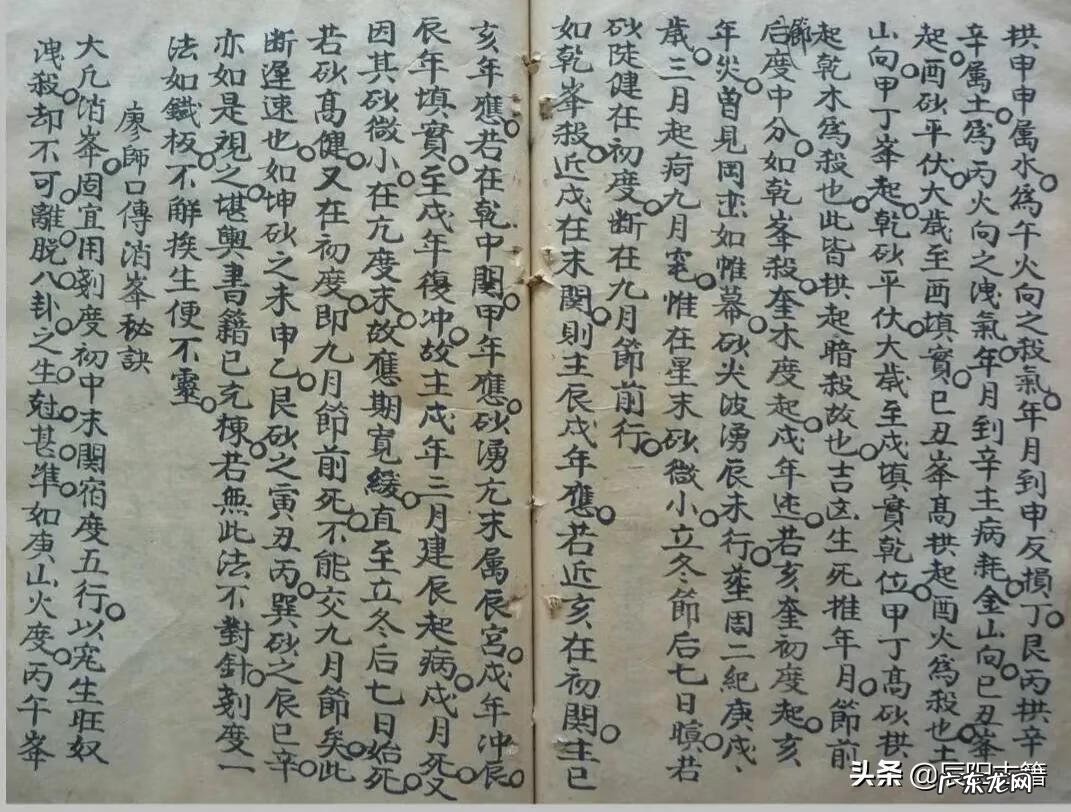 拱申申属水為午火向之殺氣年月到申反損丁艮丙拱辛
辛属土為丙火向之洩氣年月到辛主病耗金山向巳丑峯
起酉砂平伏大歲至酉填實巳丑峯高拱起酉火為殺也土
山向甲丁峯起乾砂平伏大歲至戌填實乾位甲丁高砂拱
起乾木為殺也此皆拱起暗殺故也吉凶生死推年月節前
節后度中分如乾峯殺奎木度起戌年迍若亥奎初度起亥
年災曽見岡峦如帷幕砂火波湧辰未行塟周二紀庚戌
歲三月起疴九月窀惟在星末砂微小立冬節后七日暝若
砂陡健在初度断在九月節前行
如乾峯殺近戌在末関則主辰戌年應若近亥在初関主巳
亥年應若在乾中関甲年應砂湧亢末属辰宮戌年冲辰
辰年填實至戌年復冲故主戌年三月建辰起病戌月死又
因其砂微小在亢度末故應期寛緩直至立冬后七日始死
若砂高健又在初度即九月節前死不能交九月節矣此
断遲速也如坤砂之未申乙艮砂之寅丑丙巽砂之辰巳辛
亦如是观之堪輿書籍已充棟若無此法不對針刻度一
法如鐵板不解挨生便不靈
廖師口傳消峯秘訣
大凡消峯固宜用刻度初中末関宿度五行以定生旺奴
洩殺却不可離脱八卦之生尅甚準如庚山火度丙午峯
头条@辰阳古籍
广东龙网